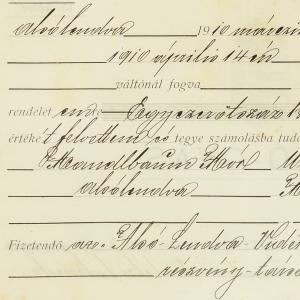 alsólendva 1910 március
1910 április 14 én
váltónál fogva
rendelet Egyezerötszáz K
értéke t felvettem és tegye számolásba tudó
Mandlbaum Mór
alsólendva
Fizetendő az Alsó-Lendva-Vidék
részvény-társ